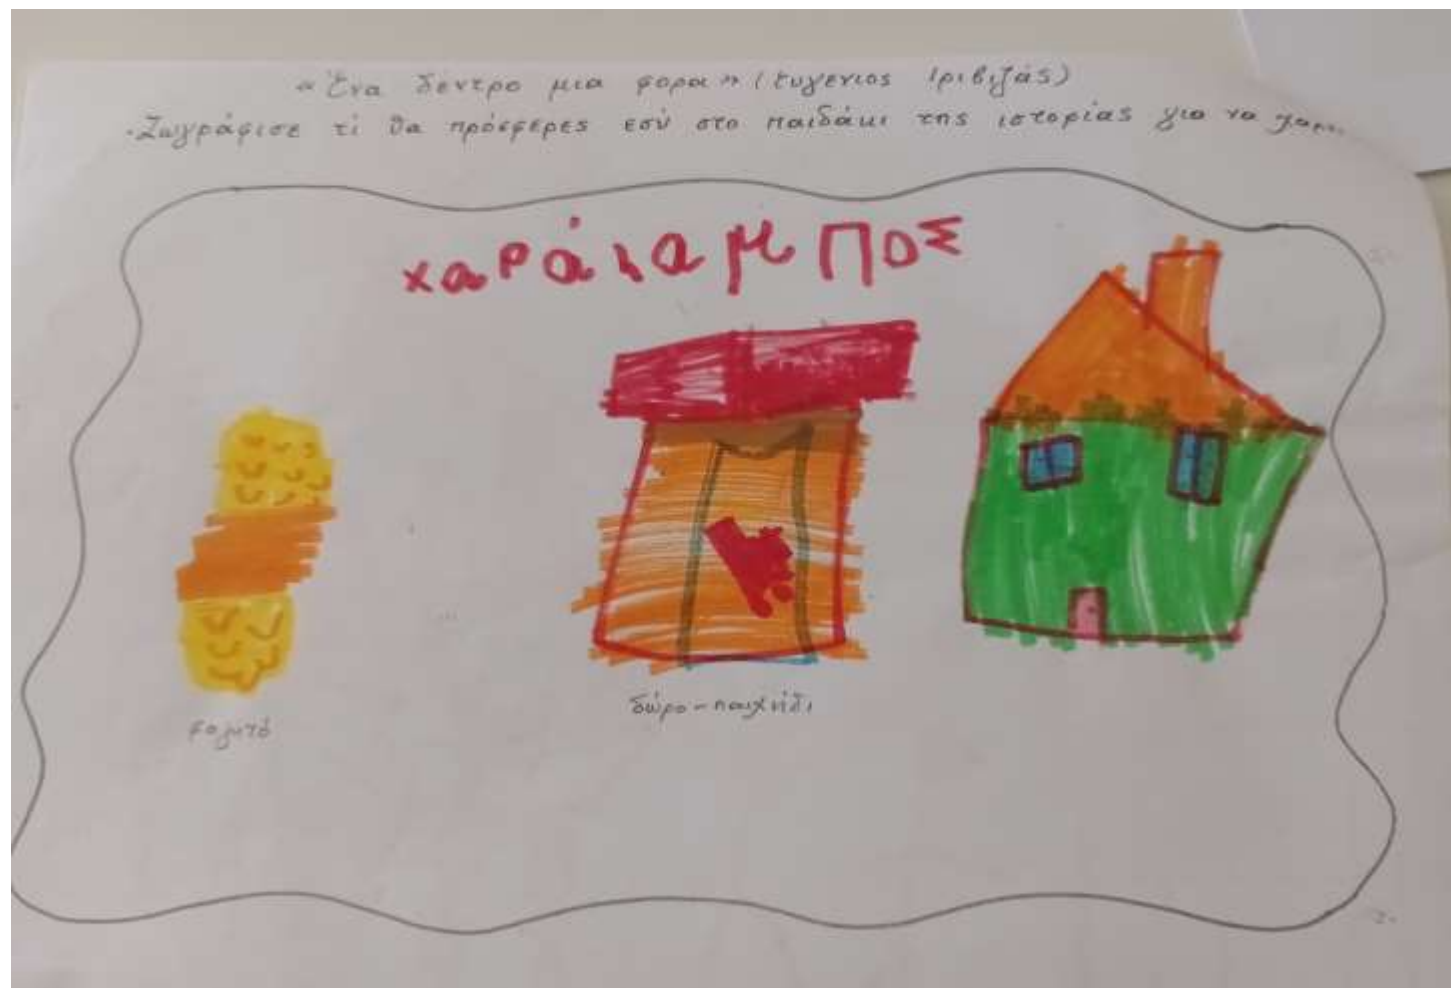 «Ένα δέντρο μια φορά» (Ευγένιος Τριβιζάς)
-Ζωγράφισε τί θα πρόσφερες εσύ στο παιδάκι της ιστορίας για να
χαράλαμΠΟΣ
φαγητό
δώρο-παιχνίδι